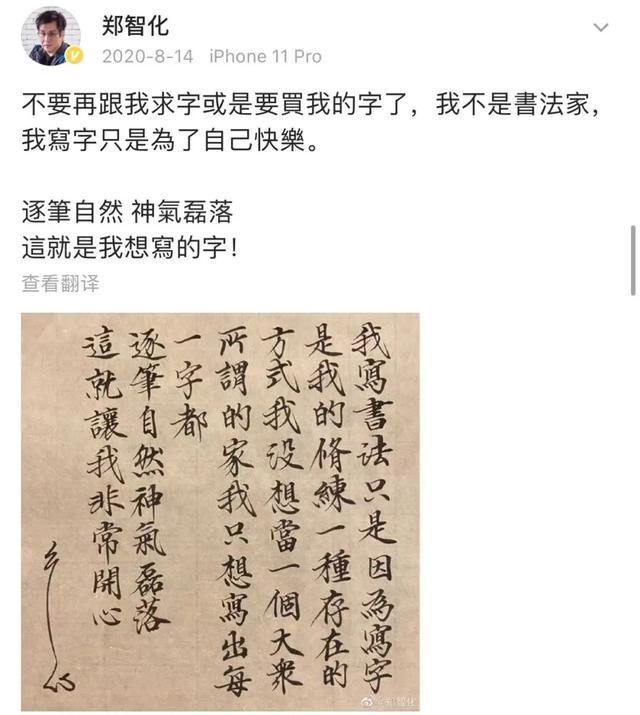 郑智化
2020-8-14 iPhone 11 Pro
不要再跟我求字或是要買我的字了，我不是書法家，
我寫字只是為了自己快樂。
逐筆自然 神氣磊落
這就是我想寫的字！
查看翻译
我寫書法只是因為寫字
是我的脩練一種存在的
方式我没想當一個大衆
所謂的家我只想寫出每
一字都
逐筆自然神氣磊落
這就讓我非常開心
@郑智化